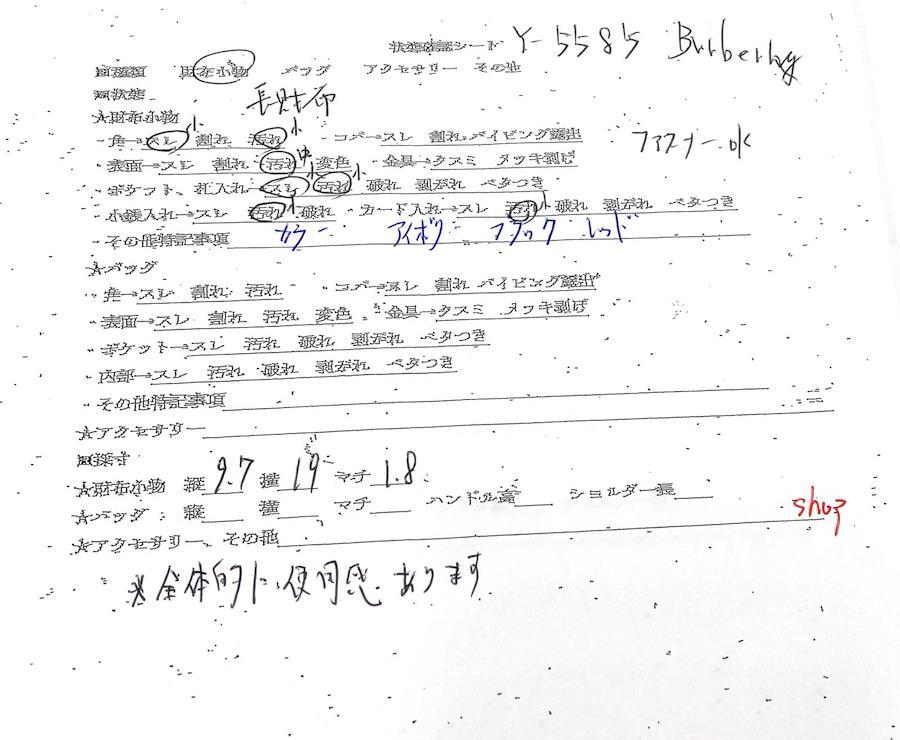 状態確認シート Y-5585 Burberry
□種類 財布小物 バッグ アクセサリー その他
□状態 長財布
☆財布小物
・角→スレ小 割れ 汚れ小 ・コバ→スレ 割れ パイピング露出 ファスナー水
・表面→スレ 割れ 汚れ中 変色 ・金具→クスミ メッキ剥げ
・ポケット、札入れ→スレ小 汚れ小 破れ 剥がれ ベタつき
・小銭入れ→スレ 汚れ小 破れ ・カード入れ→スレ 汚れ小 破れ 剥がれ ベタつき
・その他特記事項 カラー アイボリー ブラック レッド
☆バッグ
・角→スレ 割れ 汚れ ・コバ→スレ 割れ パイピング露出
・表面→スレ 割れ 汚れ 変色 ・金具→クスミ メッキ剥げ
・ポケット→スレ 汚れ 破れ 剥がれ ベタつき
・内部→スレ 汚れ 破れ 剥がれ ベタつき
・その他特記事項
☆アクセサリー
□採寸
☆財布小物 縦 9.7 横 19 マチ 1.8
☆バッグ : 縦 横 マチ ハンドル高 ショルダー長 shop
☆アクセサリー、その他
※全体的に使用感あります